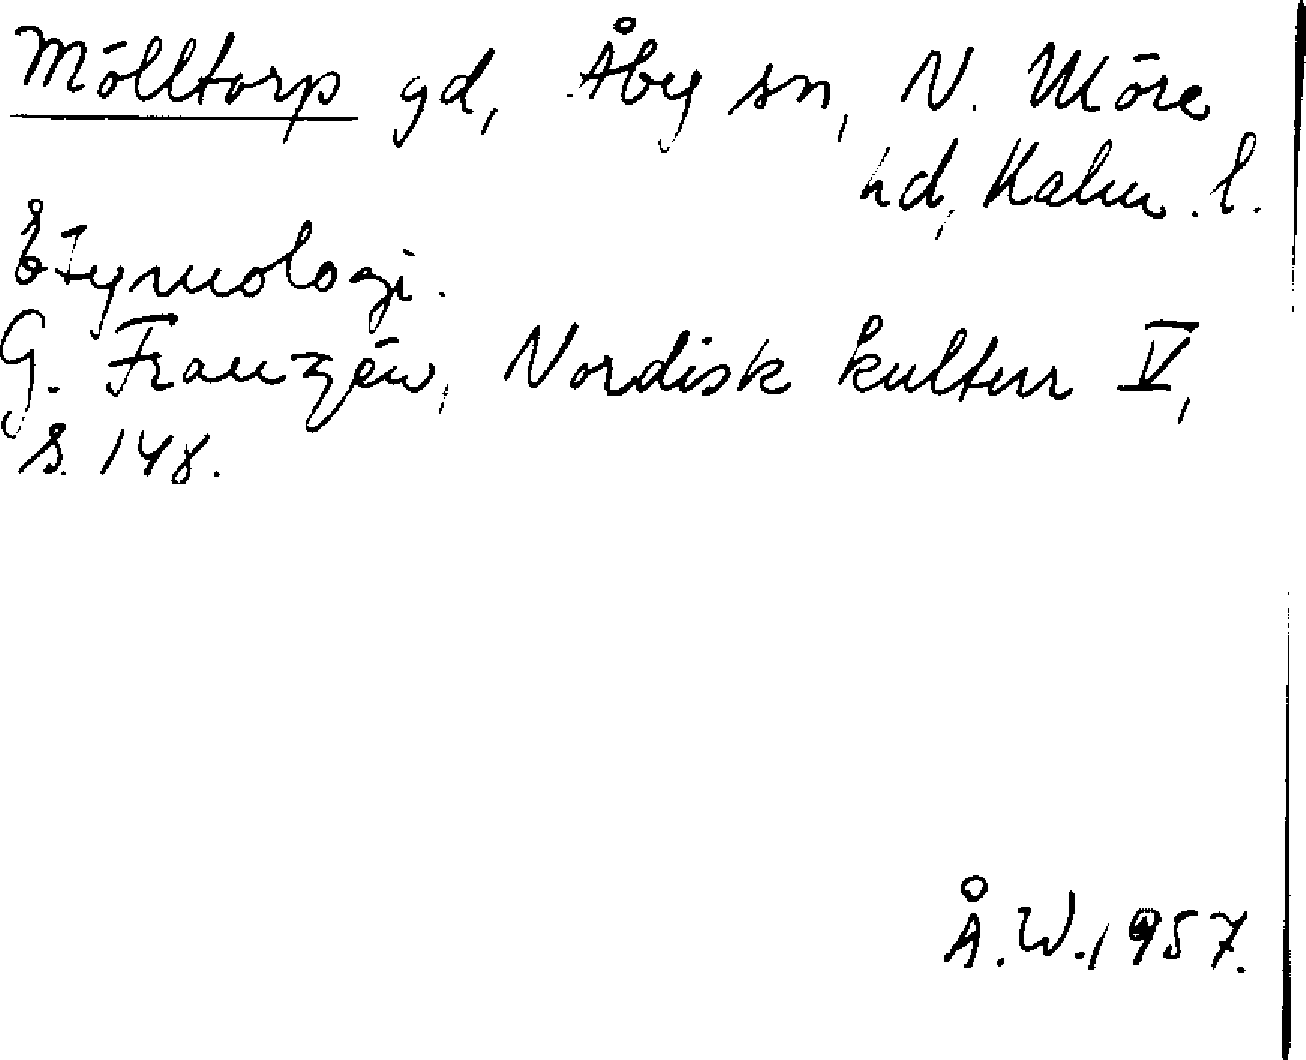 Mölltorp gd, Åby sn, N. Möre
hd, Kalm. l.
Etymologi.
G. Franzén, Nordisk kultur V,
s. 148.
Å.W. 1957.